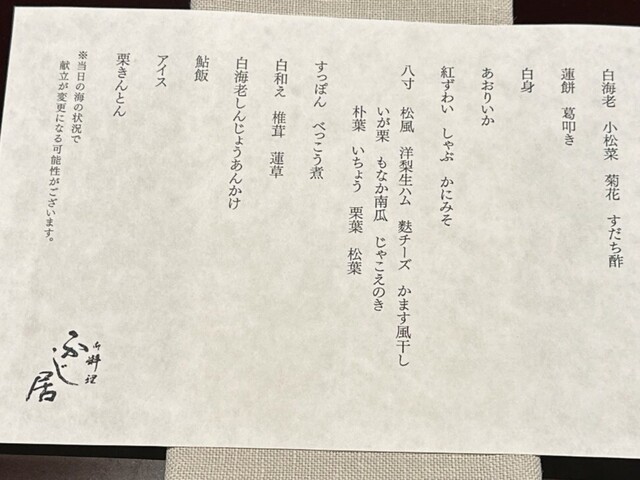 白海老　小松菜　菊花　すだち酢
蓮餅　葛叩き
白身
あおりいか
紅ずわい　しゃぶ　かにみそ
八寸　松風　洋梨生ハム　麩チーズ　かます風干し
いが栗　もなか南瓜　じゃこえのき
朴葉　いちょう　栗葉　松葉
すっぽん　べっこう煮
白和え　椎茸　蓮草
白海老しんじょうあんかけ
鮎飯
アイス
栗きんとん
※当日の海の状況で
献立が変更になる可能性がございます。
御料理
ふじ居